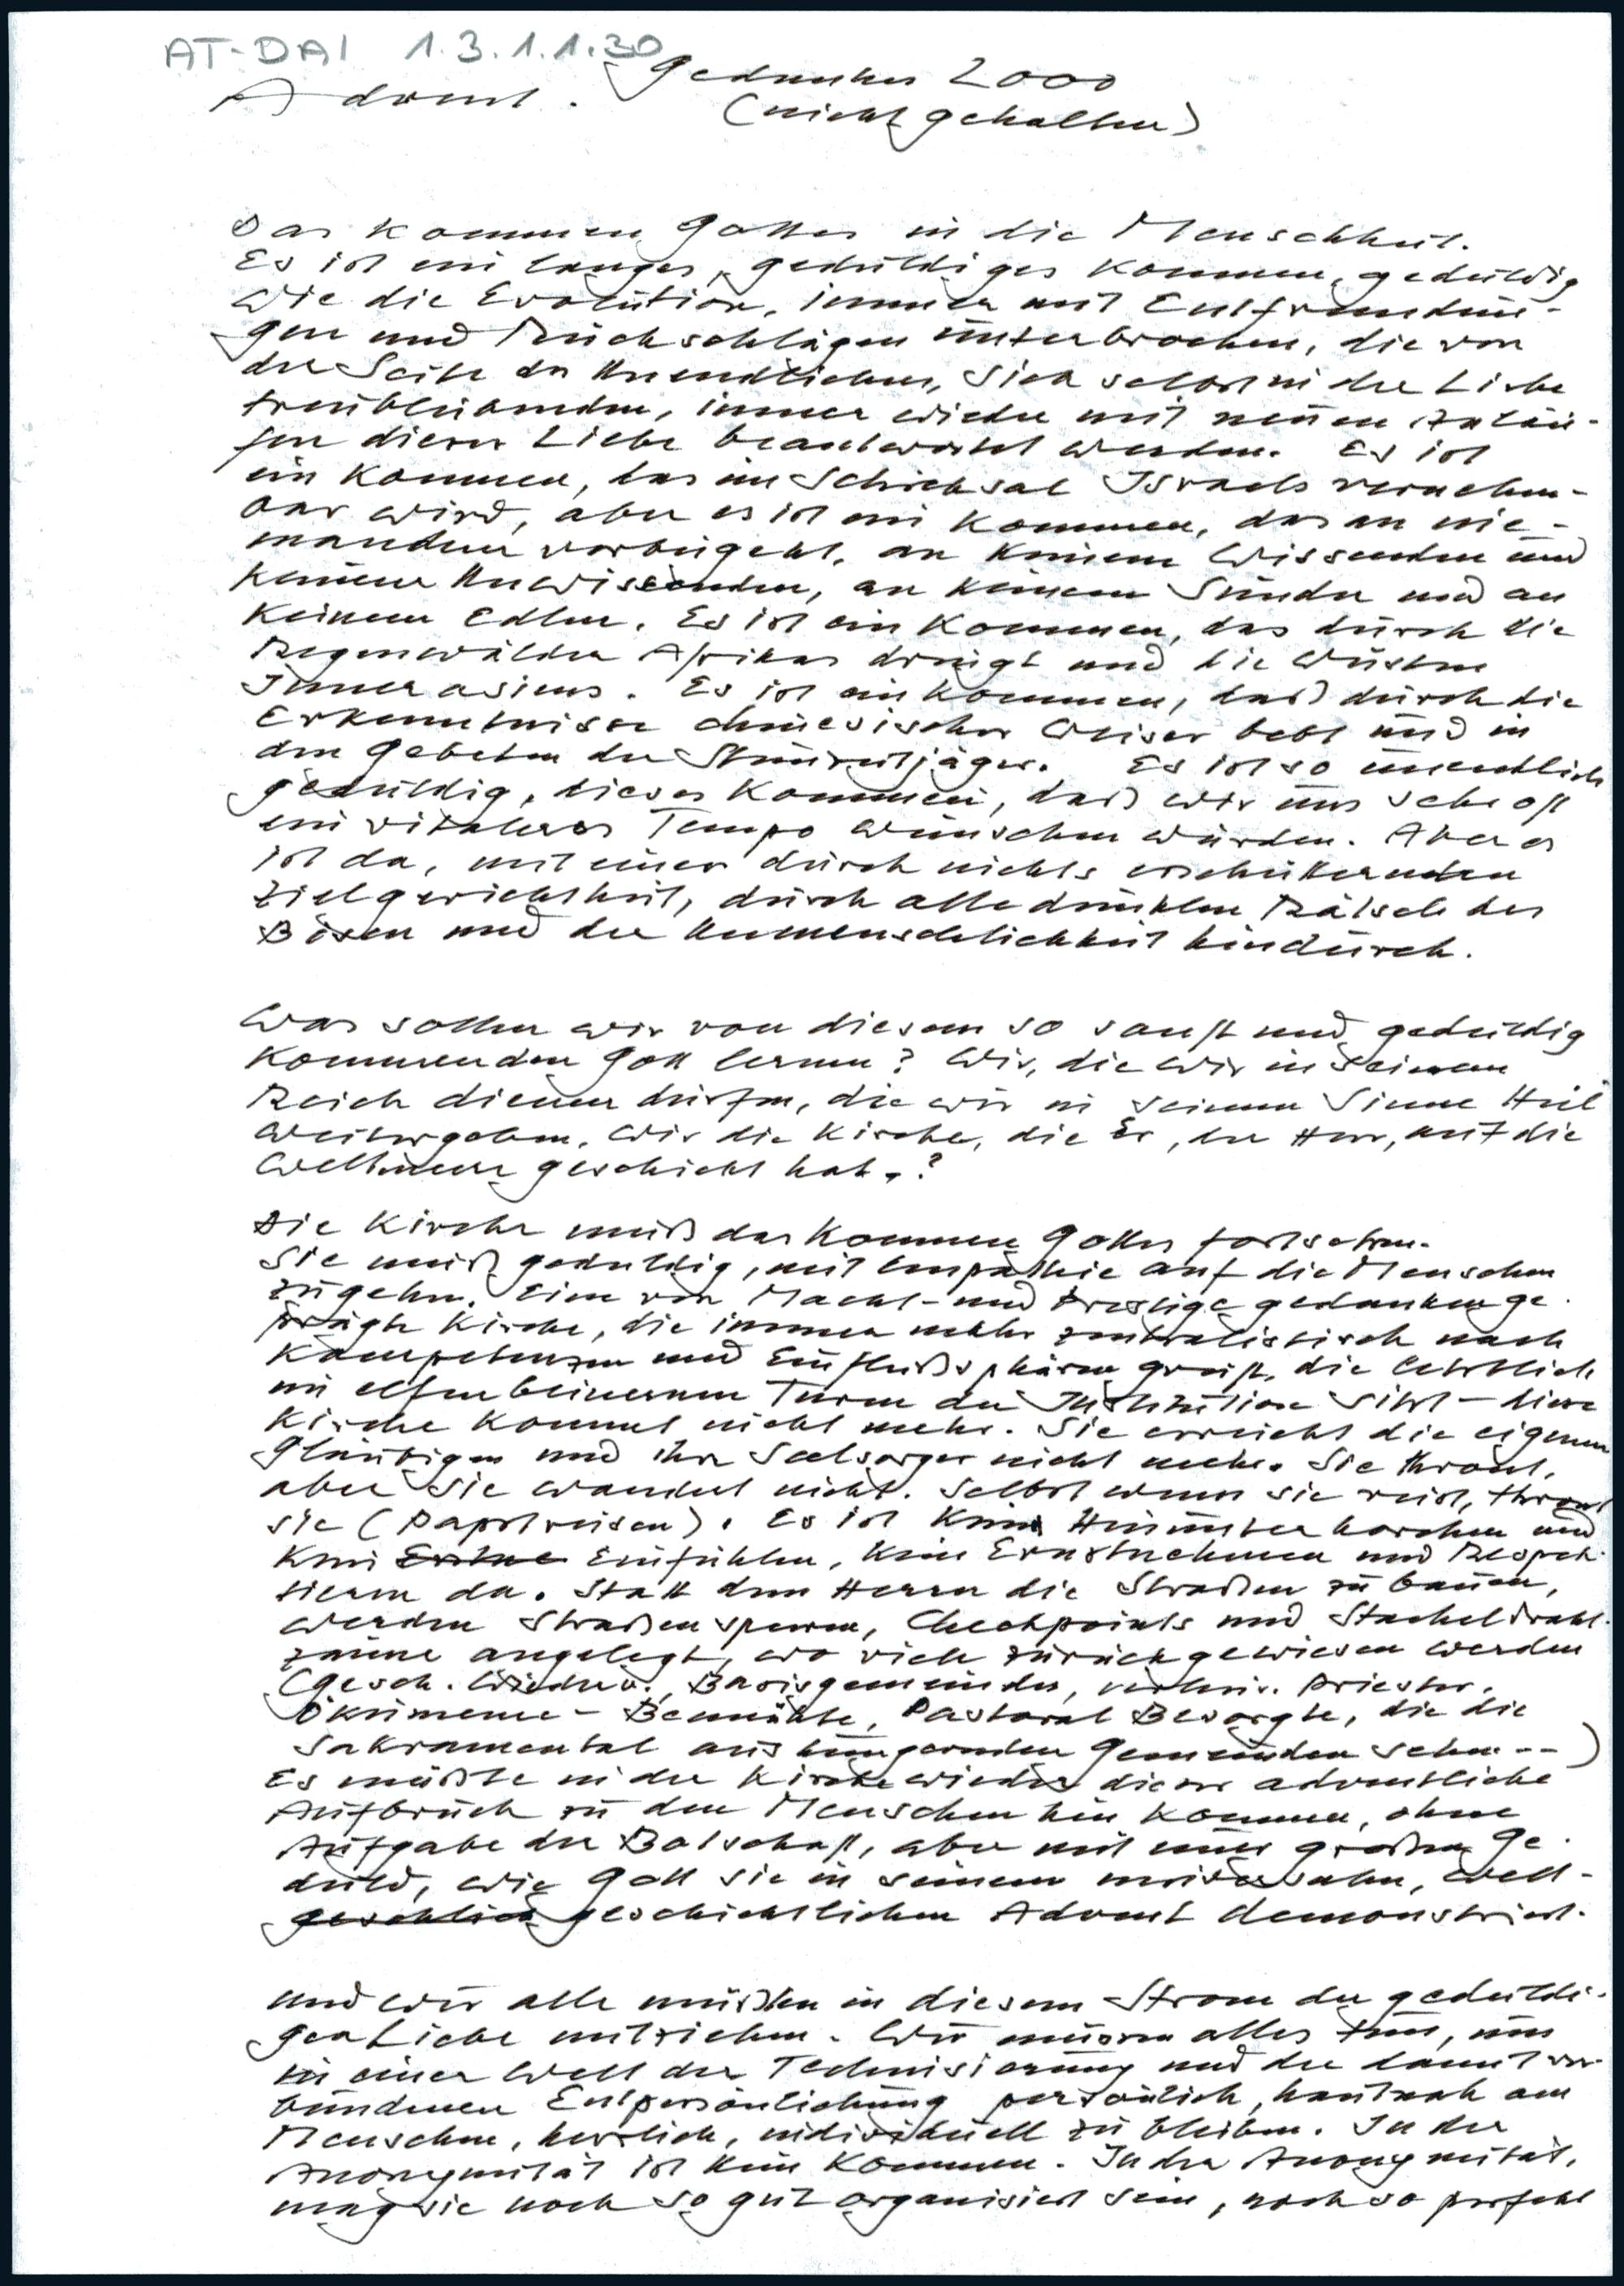 AT-DAI 1.3.1.1.30
Advent. Gedanken 2000
(nicht gehalten)
Das Kommen Gottes in die Menschheit.
Es ist ein langes, geduldiges Kommen, geduldig
wie die Evolution, immer mit Entfremdun-
gen und Rückschlägen unterbrochen, die von
der Seite des Unendlichen, sich selbst in der Liebe
treubleibenden, immer wieder mit neuen Anläu-
fen dieser Liebe beantwortet werden. Es ist
ein Kommen, das im Schicksal Israels vernehm-
bar wird, aber es ist ein Kommen, das an nie-
mandem vorbeigeht, an keinem Wissenden und
keinem Unwissenden, an keinem Sünder und an
keinem Edlen. Es ist ein Kommen, das durch die
Regenwälder Afrikas dringt und die Wüsten
Innerasiens. Es ist ein Kommen, das durch die
Erkenntnisse chinesischer Weiser bebt und in
den Gebeten der Steinzeitjäger. Es ist so unendlich
geduldig, dieses Kommen, daß wir uns sehr oft
ein vitaleres Tempo wünschen würden. Aber es
ist da, mit einer durch nichts erschütternden
Zielgerichtheit, durch alle dunklen Rätsel des
Bösen und der Unmenschlichkeit hindurch.
Was sollen wir von diesem so sanft und geduldig
kommenden Gott lernen? Wir, die wir in seinem
Reich dienen dürfen, die wir in seinem Sinne Heil
weitergeben. Wir die Kirche, die Er, der Herr, auf die
Weltmeere geschickt hat.?
Die Kirche muß das Kommen Gottes fortsetzen.
Sie muß geduldig, mit Empathie auf die Menschen
zugehen. Eine von Macht- und Prestigegedanken ge-
prägte Kirche, die immer mehr zentralistisch nach
Kompetenzen und Einflußsphären greift, die letztlich
im elfenbeinernen Turm der Institution sitzt – diese
Kirche kommt nicht mehr. Sie erreicht die eigenen
Gläubigen und ihre Seelsorger nicht mehr. Sie thront,
aber sie wandert nicht. Selbst wenn sie reist, thront
sie (Papstreisen). Es ist kein Hinunterhorchen und
kein Einfühlen, kein Ernstnehmen und Respek-
tieren da. Statt dem Herrn die Straßen zu bauen,
werden Straßensperren, Checkpoints und Stacheldraht-
zäune angelegt, wo viele zurückgewiesen werden
(Gesch. Wiederv., Basisgemeinden, verheir. Priester,
Ökumene-Bemühte, Pastoral Besorgte, die die
Sakramental aushungernden Gemeinden sehen --)
Es müßte in der Kirche wieder dieser adventliche
Aufbruch zu den Menschen hin kommen, ohne
Aufgabe der Botschaft, aber mit einer großen Ge-
duld, wie Gott sie in seinem universalen, welt-
geschichtlichen Advent demonstriert.
Und wir alle müßten in diesem Strom der geduldi-
gen Liebe mitziehen. Wir müssen alles tun, um
in einer Welt der Technisierung und der damit ver-
bundenen Entpersönlichung persönlich, hautnah am
Menschen, herzlich, individuell zu bleiben. In der
Anonymität ist kein Kommen. In der Anonymität,
mag sie noch so gut organisiert sein, noch so perfekt